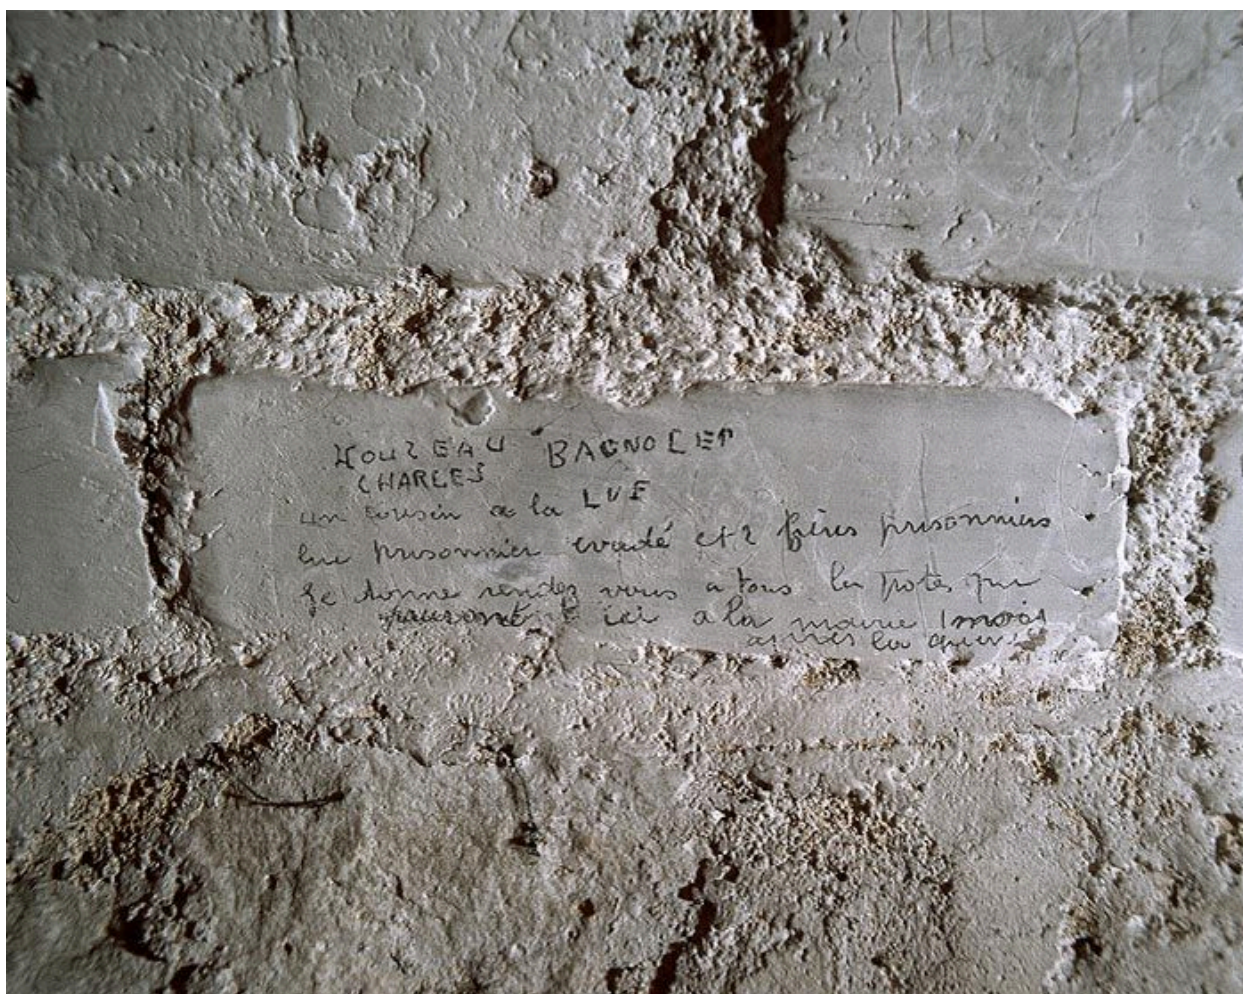 BAGNOLET
CHARLES
un cousin a la LVF
prisonnier evadé et 2 frères prisonniers
Je donne rendez vous a tous les potes qui
ici a la mairie 1 mois
après la guerre